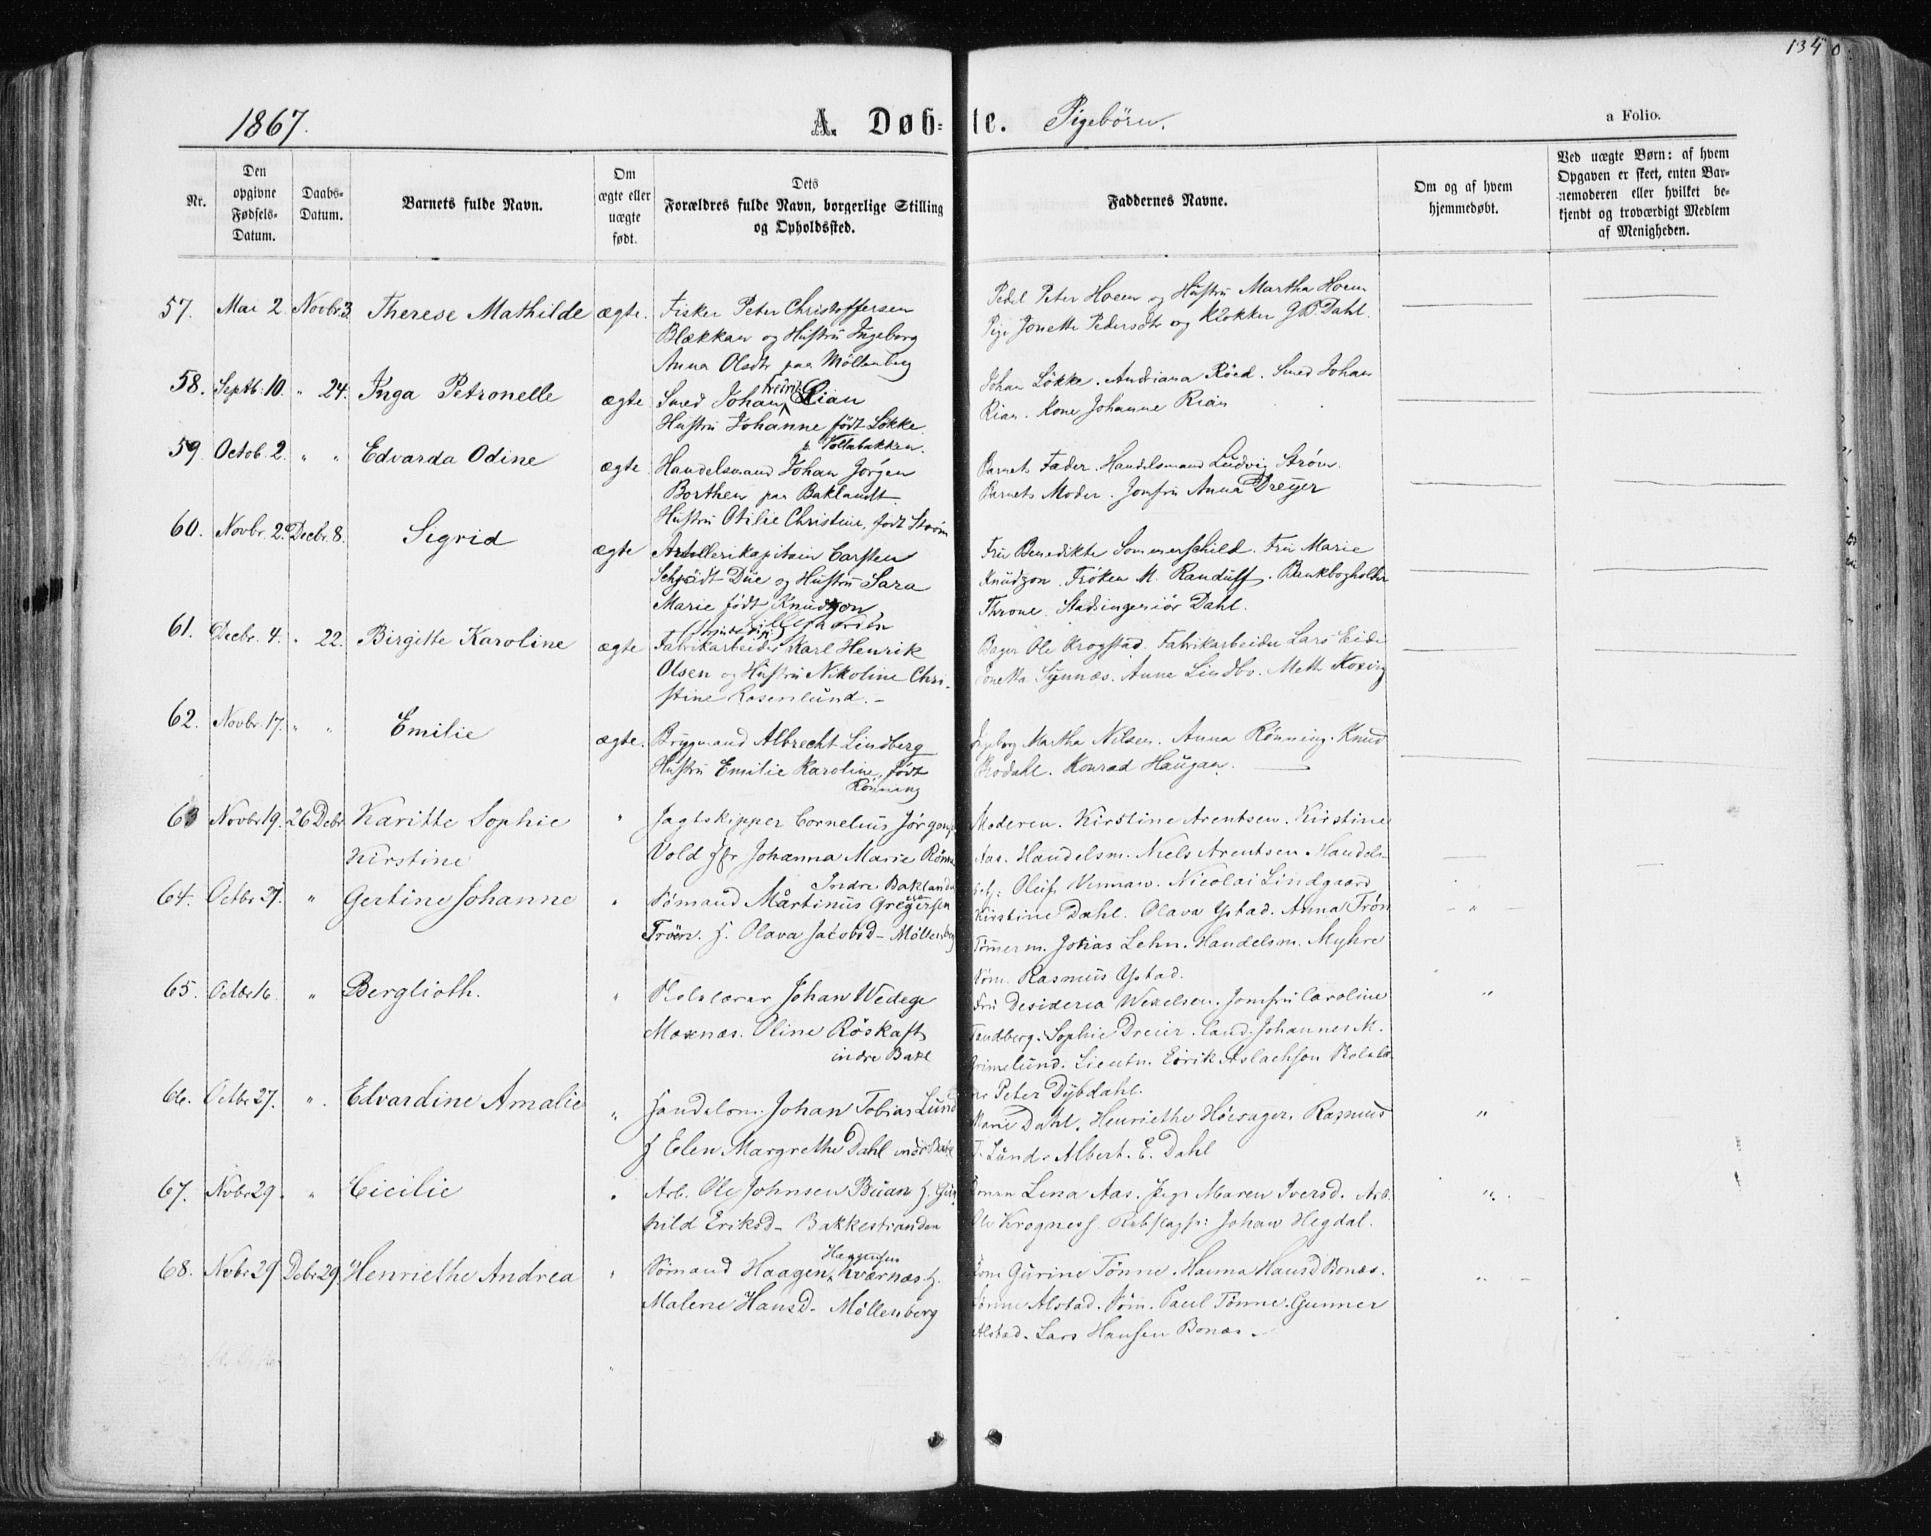 1340.
1867.
A. Døb-te.
Pigebörn.
a Folio.
Nr.
Den opgivne Fødsels-Datum.
Daabs-Datum.
Barnets fulde Navn.
Om ægte eller uægte født.
Dets Forældres fulde Navn, borgerlige Stilling og Opholdssted.
Faddernes Navne.
Om og af hvem hjemmedøbt.
Ved uægte Børn: af hvem Opgaven er skeet, enten Bar-nemoderen eller hvilket be-kjendt og troværdigt Medlem af Menigheden.
57. Mai 2. Novbr. 3. Therese Mathilde ægte. Fisker Peter Christoffersen
Blækkan og Hustru Ingeborg
Anna Olsdtr paa Möllenberg
Pedel Peter Hoem og Hustru Martha Hoem
Pige Jonette Pedersdtr og Klokker G.P. Dahl.
58. Septb. 10. " 24. Inga Petronelle ægte Smed Johan Fredrik Rian
Hustru Johanne født Løkke.
p. Vollabakken.
Johan Løkke. Andriana Röed. Smed Johan
Rian. Kone Johanne Rian
59. Octob. 2. " " Edvarda Odine ægte Handelsmand Johan Jörgen
Borthen paa Baklandt
Hustru Otilie Christine, født Ström
Barnets Fader. Handelsmand Ludvig Ström.
Barnets Moder. Jomfru Anna Dreyer
60. Novbr. 2. Decbr. 8. Sigrid ægte Artillerikapitain Carsten
Schjödt Düe og Hustru Sara
Marie født Knudtzon,
Lillegaarden
Fru Benedikte Sommerschild. Fru Marie
Knudtzon. Frøken M. Randulf. Bankbogholder
Throne. Stadsingeniör Dahl.
61. Decbr. 4. " 22. Birgitte Karoline ægte Fabrikarbeider Karl Henrik
Olsen og Hustru Nikoline Chri-
stine Rosenlund. -
Bager Ole Krogstad. Fabrikarbeider Lars Eide
Jonetta Synnæs. Anne Lindbo. Meth Koxvig
62. Novbr. 17. " " Emilie ægte. Brygmand Albrecht Lindberg
Hustru Emilie Karoline, født
Rönning
Ingeborg Martha Nilsen. Anna Rönning. Knud
Brodahl. Konrad Haugan.
63 Novbr 19. 26 Debr Karitte Sophie " Jagtskipper Cornelius Jörgens
Kirstine Vold Hr Johanna Marie Rönne
Indre Baklandet
Moderen. Kirstine Arentsen. Kirstine
Aas. Handelsm. Niels Arentsen Handels-
btj: Oluf Vennaw. Nicolai Lindgaard
64. Octbr 31. " Gertine Johanne " Sømand Mårtinus Gregersen
Tröen. H. Olava Jacobsd- Möllenberg
Kirstine Dahl. Olava Ystad. Anna Trön
Tømmerm. Josias Lehn. Handelsm. Myhre
Søm. Rasmus Ystad.
65. Octbr 16. " Berglioth. " Skolelærer Johan Wedege
Moxnæs. Oline Röskaft
indre Bakl
Fru Desideria Wexelsen. Jomfru Caroline
Sandberg. Sophie Dreier. Cand. Johannes M.
Grimelund. Lieutn. Eirik Aslachson Skolelæ-
rer Peter Dybdahl.
66. Octbr 27. " Edvardine Amalie " Handelsm. Johan Tobias Lund
H Elen Margrethe Dahl indr Bakl
Marie Dahl. Henriethe Höisager. Rasmus
T. Lund. Albert. E. Dahl
67. Nvbr 29. " Cicilie " Arb. Ole Johnsen Buan H. Gun
hild Eriksd- Bakkestranden
Konen Lina Aas. Pige Maren Iversd. Arb.
Ole Krogness. Rebslagsv: Johan Hegdal.
68. Nvbr 29 Debr 29. Henriethe Andrea " Sømand Haagen Haagensen Kværnæs H.
Malene Hansd- Möllenberg
Kone Gurine Tönne. Hanna Hansd Bonæs.
Sönne Alstad. Søm. Paul Tönne. Gunner
Alstad. Lars Hansen Bonæs.